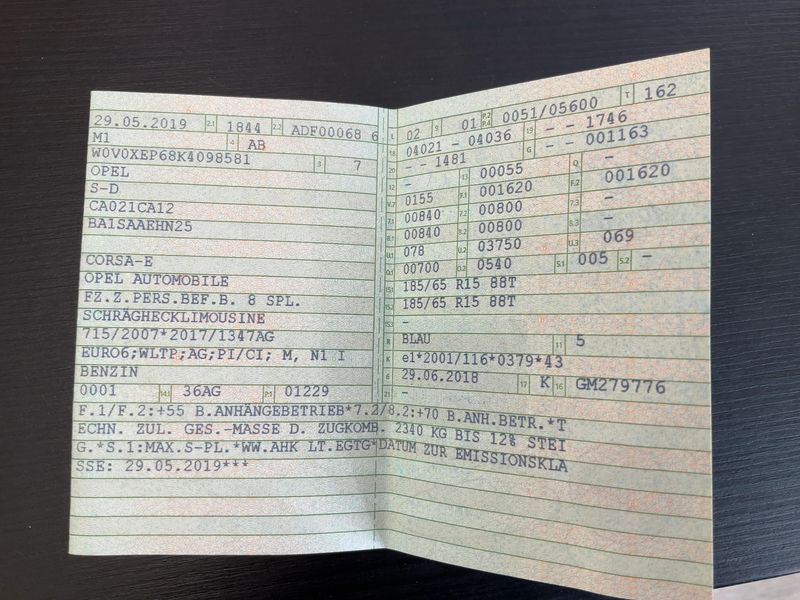 29.05.2019 2.1 1844 2.2 ADF00068 6
M1 4 AB
W0V0XEP68K4098581 3 7
OPEL
S-D
CA021CA12
BA1SAAEHN25
CORSA-E
OPEL AUTOMOBILE
FZ.Z.PERS.BEF.B. 8 SPL.
SCHRÄGHECKLIMOUSINE
715/2007*2017/1347AG
EURO6;WLTP;AG;PI/CI; M, N1 I
BENZIN
0001 14.1 36AG P.1 01229
L 02 9 01 P.2 P.4 0051/05600 T 162
18 04021 - 04036 19 - - 1746
20 - - 1481 G - - 001163
12 - 13 00055 Q -
V.7 0155 F.1 001620 F.2 001620
7.1 00840 7.2 00800 7.3 -
8.1 00840 8.2 00800 8.3 -
U.1 078 U.2 03750 U.3 069
O.1 00700 O.2 0540 S.1 005 S.2 -
15.1 185/65 R15 88T
15.2 185/65 R15 88T
15.3 -
R BLAU 11 5
K e1*2001/116*0379*43
6 29.06.2018 17 K 16 GM279776
21 -
F.1/F.2:+55 B.ANHÄNGEBETRIEB*7.2/8.2:+70 B.ANH.BETR.*T
ECHN. ZUL. GES.-MASSE D. ZUGKOMB. 2340 KG BIS 12% STEI
G.*S.1:MAX.S-PL.*WW.AHK LT.EGTG*DATUM ZUR EMISSIONSKLA
SSE: 29.05.2019***